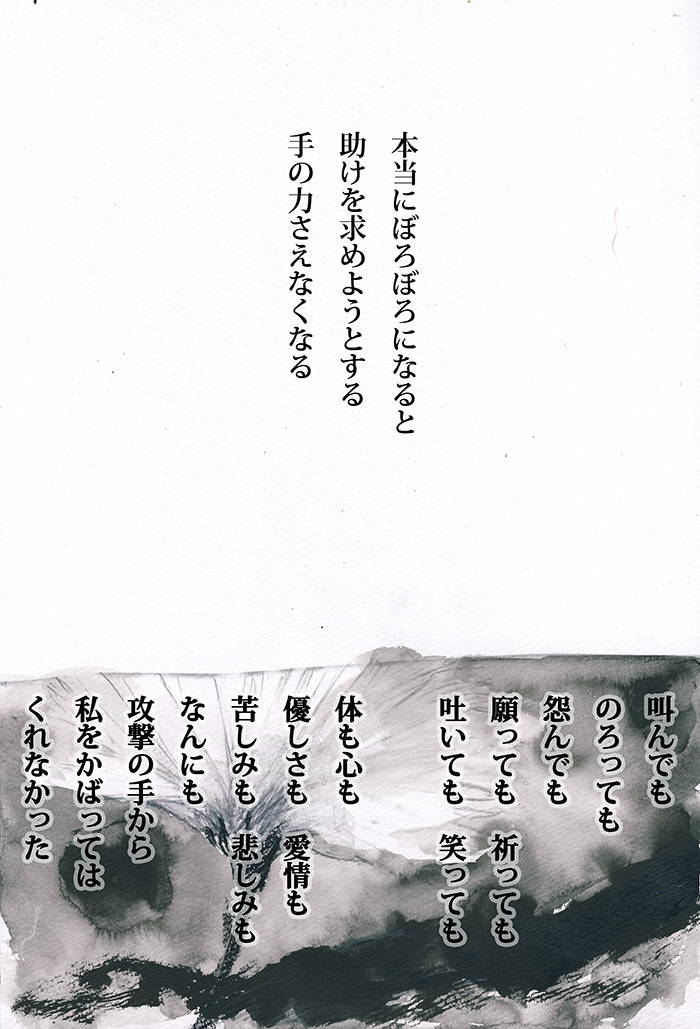 本当にぼろぼろになると
助けを求めようとする
手の力さえなくなる
叫んでも
のろっても
怨んでも
願っても 祈っても
吐いても 笑っても
体も心も
優しさも 愛情も
苦しみも 悲じみも
なんにも
攻撃の手から
私をかばっては
くれなかった